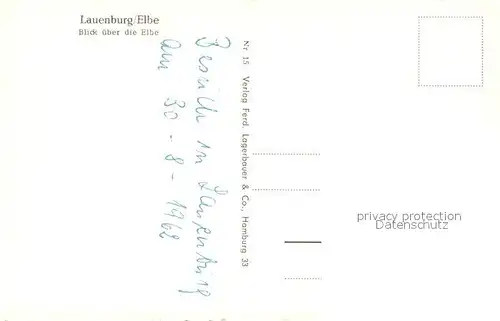 Lauenburg/Elbe
Blick über die Elbe
Besuch in Lauenburg
am 30-8-1962
Nr 15 Verlag Ferd. Lagerbauer & Co., Hamburg 33
privacy protection
Datenschutz